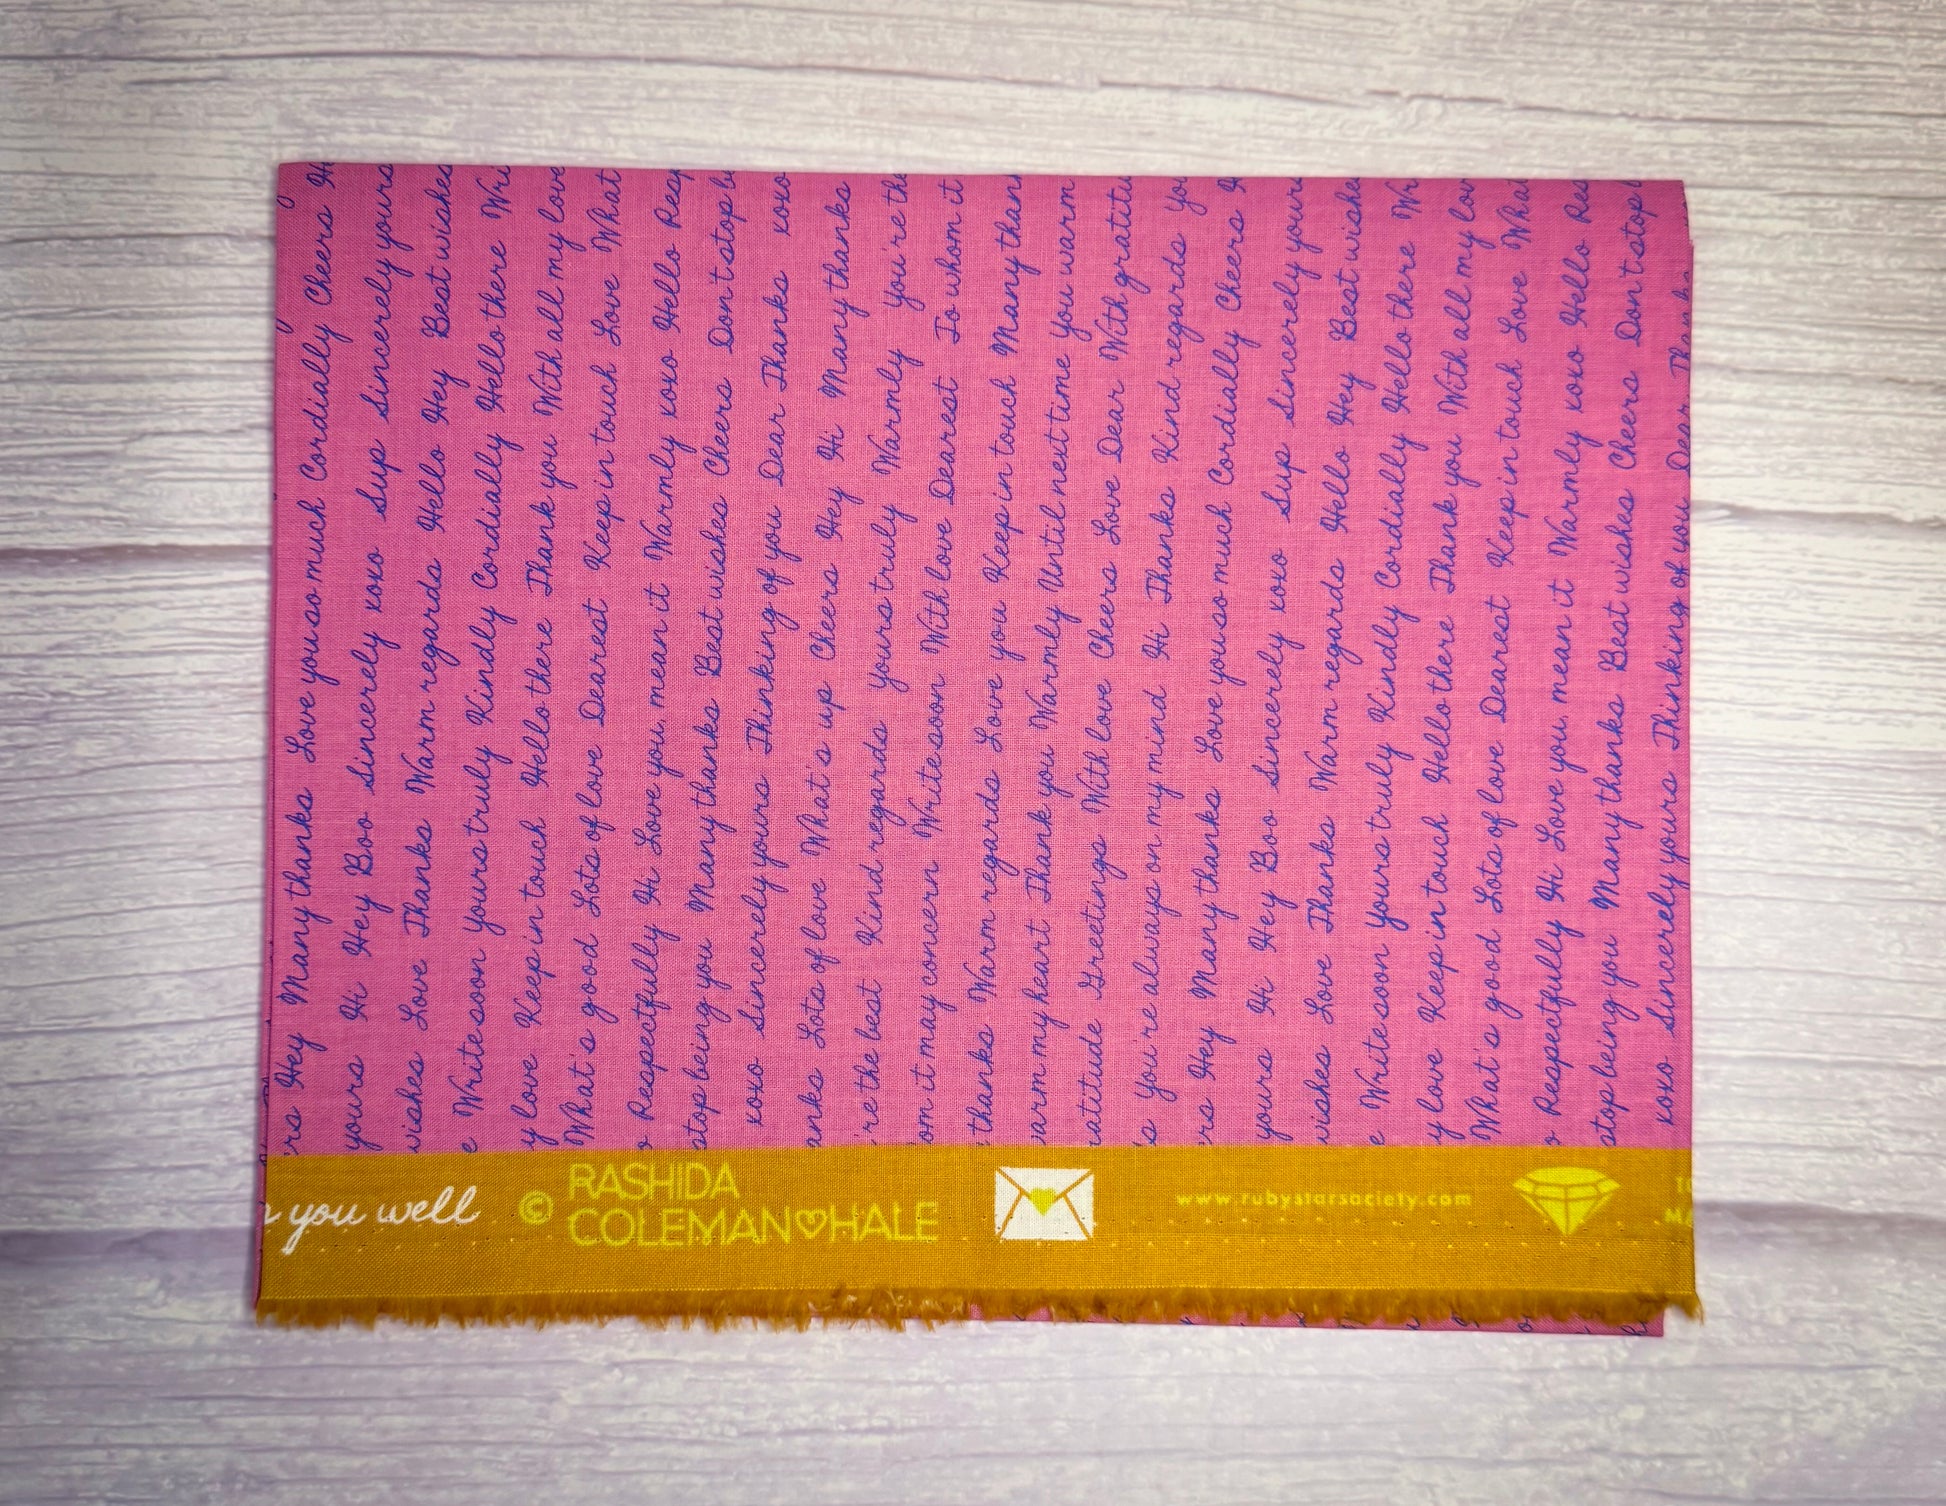 Hey Many thanks Love you so much Cordially Cheers
yours Hi Hey Boo Sincerely xoxo Sup Sincerely yours
wishes Love Thanks Warm regards Hello Hey Best wishes
Write soon Yours truly Kindly Cordially Hello there
y love Keep in touch Hello there Thank you With all my love
What's good Lots of love Dearest Keep in touch Love What
Respectfully Hi Love you, mean it Warmly xoxo Hello Resp
stop being you Many thanks Best wishes Cheers Don't stop b
xoxo Sincerely yours Thinking of you Dear Thanks xoxo
anks Lots of love What's up Cheers Hey Hi Many thanks
're the best Kind regards Yours truly Warmly You're the
om it may concern Write soon With love Dearest To whom it
thanks Warm regards Love you Keep in touch Many than
warm my heart Thank you Warmly Until next time You warm
ratitude Greetings With love Cheers Love Dear With gratitu
's You're always on my mind Hi Thanks Kind regards Yo
ers Hey Many thanks Love you so much Cordially Cheers
yours Hi Hey Boo Sincerely xoxo Sup Sincerely your
wishes Love Thanks Warm regards Hello Hey Best wishe
e Write soon Yours truly Kindly Cordially Hello there Wr
y love Keep in touch Hello there Thank you With all my lov
What's good Lots of love Dearest Keep in touch Love What
o Respectfully Hi Love you, mean it Warmly xoxo Hello Res
stop being you Many thanks Best wishes Cheers Don't stop
xoxo Sincerely yours Thinking of you Dear
you well
© RASHIDA
COLEMAN♡HALE
www.rubystarsociety.com